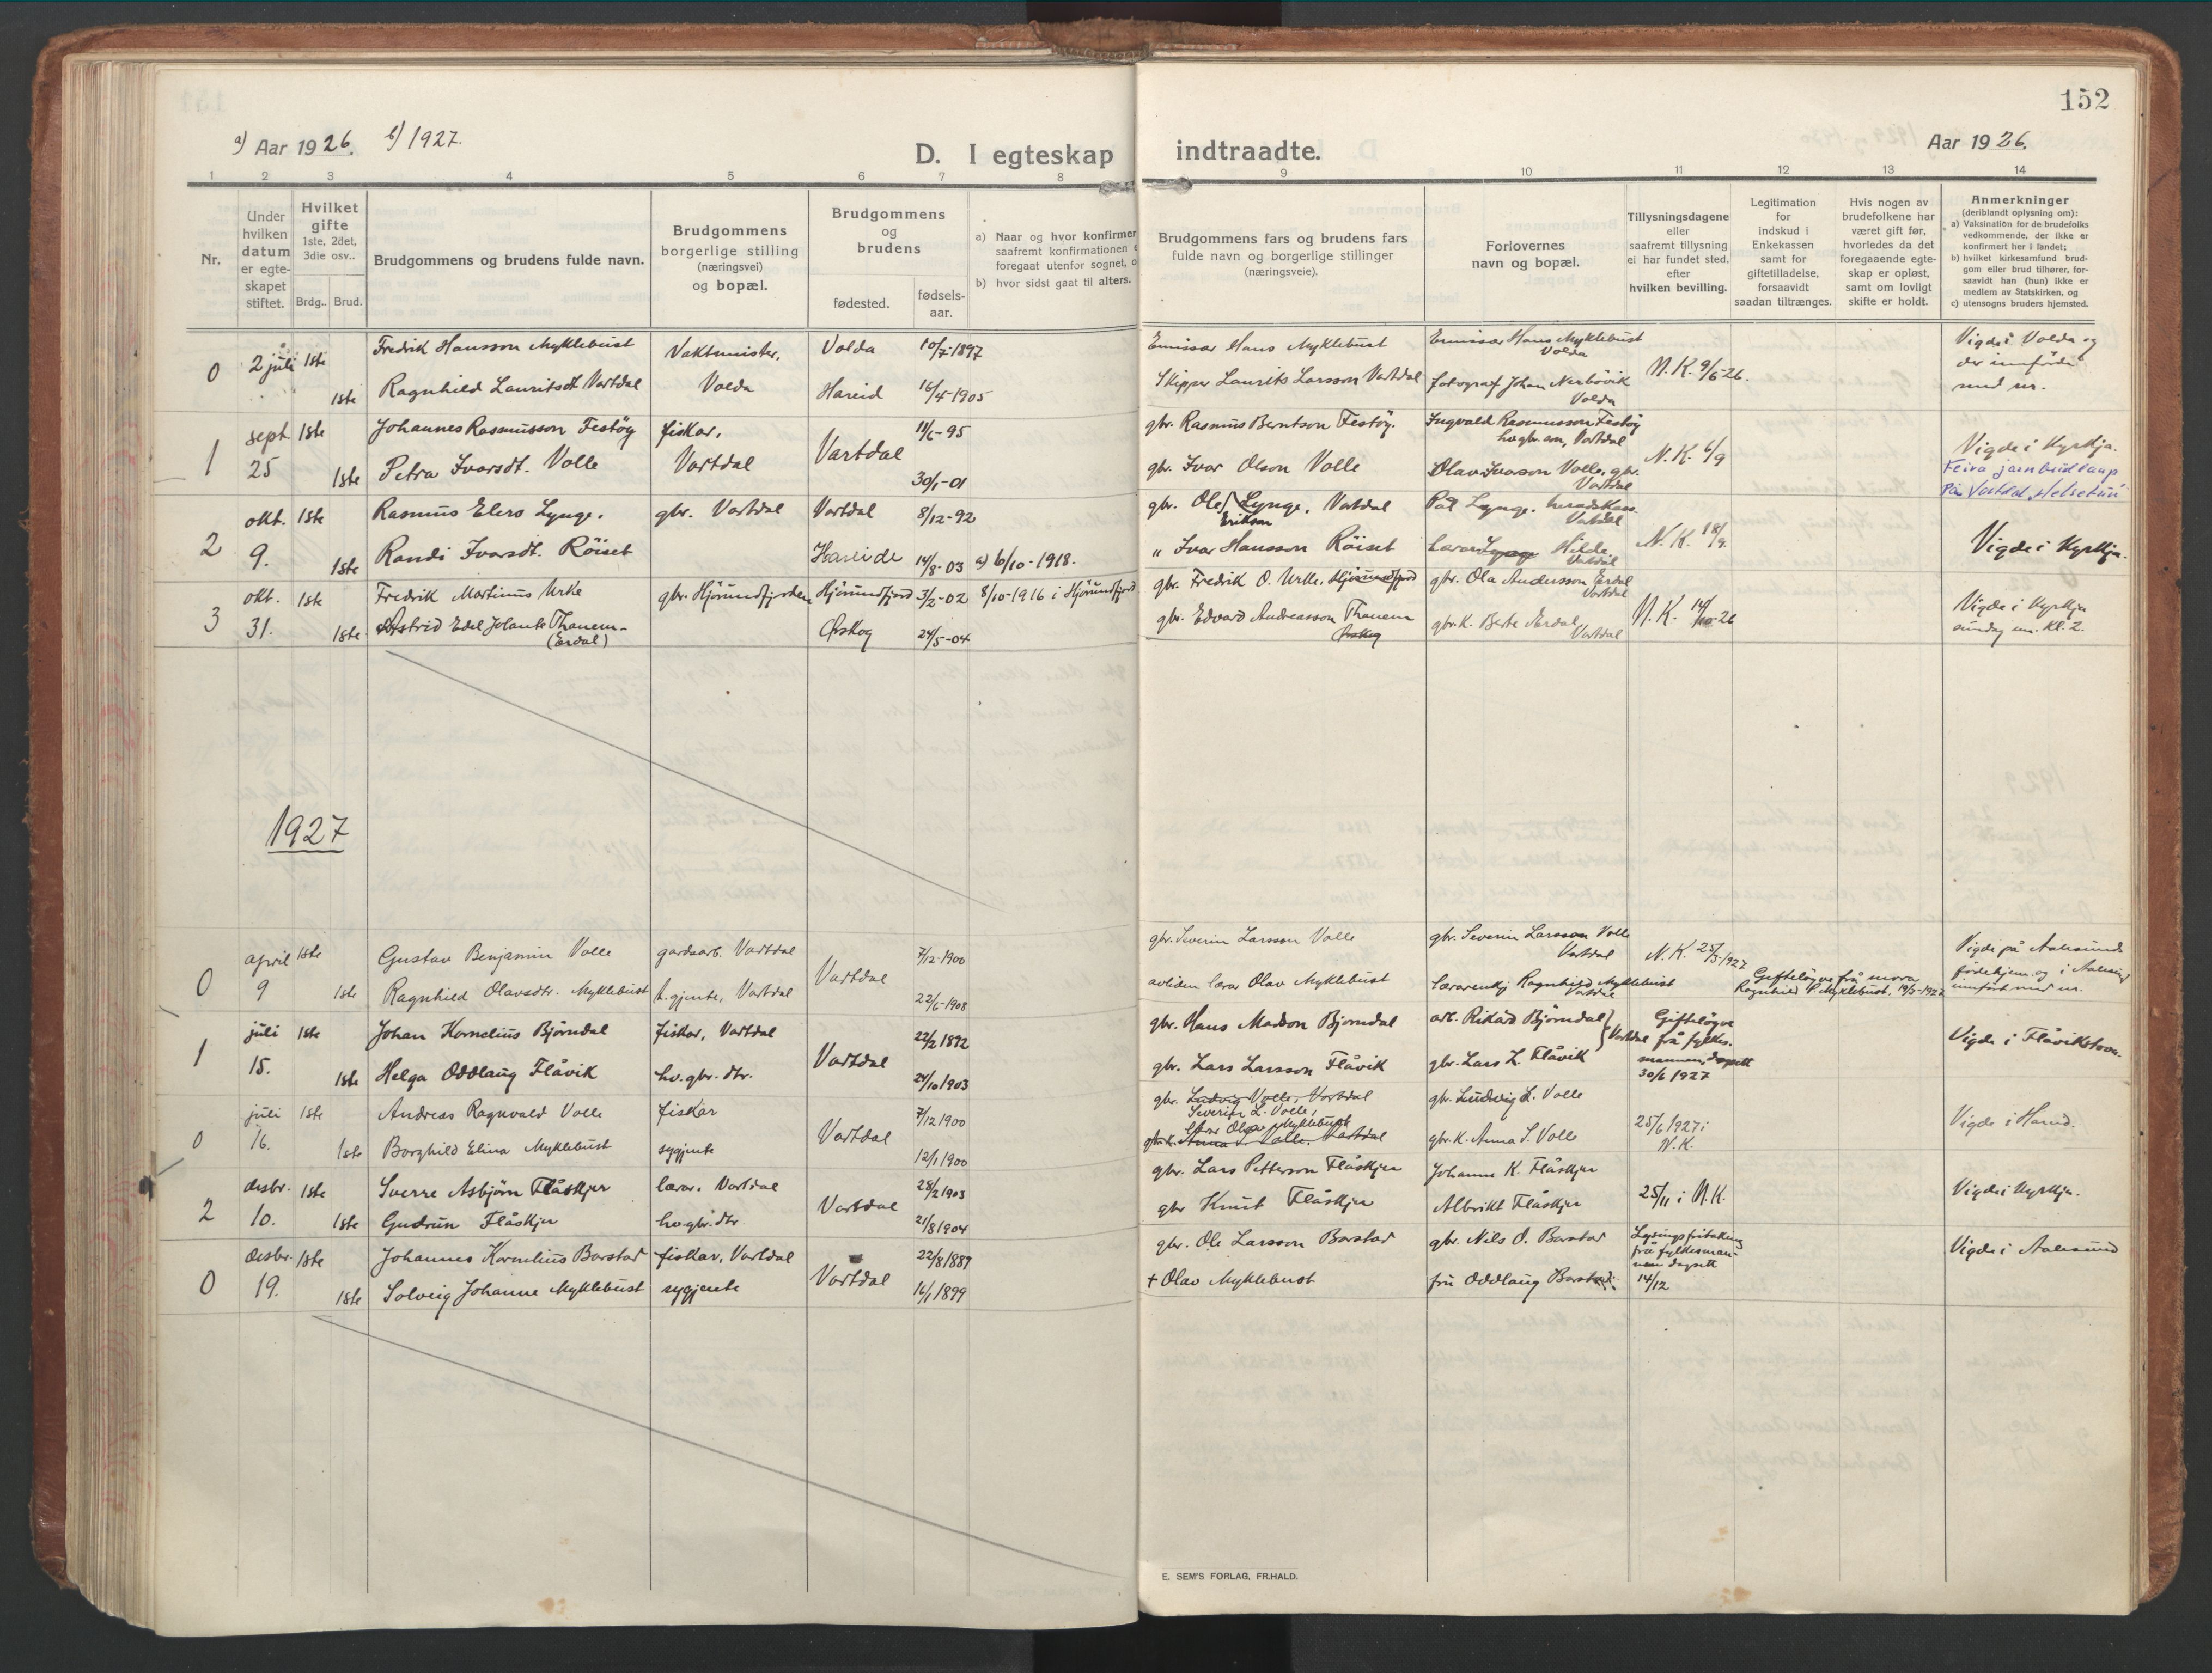 152
a) Aar 1926. b) 1927.
D. I egteskap indtraadte.
Aar 1926.
1 2 3 4 5 6 7 8 9 10 11 12 13 14
Nr.
Under hvilken datum er egte-skapet stiftet.
Hvilket gifte
1ste, 2det, 3die osv..
Brdg.. Brud.
Brudgommens og brudens fulde navn.
Brudgommens borgerlige stilling
(næringsvei)
og bopæl.
Brudgommens og brudens
fødested.
fødsels-aar.
a) Naar og hvor konfirmer
saafremt konfirmationen
foregaat utenfor sognet, o
b) hvor sidst gaat til alters.
Brudgommens fars og brudens fars
fulde navn og borgerlige stillinger
(næringsveie).
Forlovernes
navn og bopæl.
Tillysningsdagene
eller
saafremt tillysning
ei har fundet sted,
efter
hvilken bevilling.
Legitimation
for
indskud i
Enkekassen
samt for
giftetilladelse,
forsaavidt
saadan tiltrænges.
Hvis nogen av
brudefolkene har
været gift før,
hvorledes da det
foregaaende egte-
skap er opløst,
samt om lovligt
skifte er holdt.
Anmerkninger
(deriblandt oplysning om):
a) Vaksination for de brudefolks
vedkommende, der ikke er
konfirmert her i landet;
b) hvilket kirkesamfund brud-
gom eller brud tilhører, for-
saavidt han (hun) ikke er
medlem av Statskirken, og
c) utensogns bruders hjemsted.
0 2 juli 1ste Fredrik Hansson Myklebust Vaktmeister, Volda 10/7-1897 Emissær Hans Myklebust Emissær Hans Myklebust Volda N.K. 9/6-26. Vigde i Volda og
1ste Ragnhild Lauritsdt. Vartdal Volda Hareid 16/4-1905 Skipper Laurits Larsson Vartdal fotograf Johan Nerbövik Volda der innförde med nr.
1 sept. 25 1ste Johannes Rasmusson Festöy fiskar, Vartdal 11/6-95 gbr. Rasmus Berntson Festöy. Ingvald Rasmusson Festöy Vartdal N.K. 6/9 Vigde i Kyrkja.
1ste Petra Ivarsdt. Volle Vartdal 30/1-01 gbr. Ivar Olson Volle Olav Ivarson Volle, gbr. Vartdal Feira jarnbrudlaup
På Vartdal Helsetun
2 okt. 9. 1ste Rasmus Elers Lynge. gbr. Vartdal Vartdal 8/12-92 gbr. Ole Erikson Lynge, Vartdal Pål Lynge, heradskass. Vartdal N.K. 18/9. Vigde i Kyrkja.
1ste Randi Ivarsdt. Röiset Hareide 14/8-03 a) 6/10-1918. " Ivar Hansson Röiset Lærar Lynge Hilde Vartdal
3 okt. 31. 1ste Fredrik Martinus Urke gbr. Hjörundfjorden Hjörundfjord 3/2-02 8/10-1916 i Hjörundfjord gbr. Fredrik O. Urke, Hjörundfjord gbr. Ola Andersson Erdal Vartdal N.K. 14/10-26 Vigde i Kyrkja
1ste Astrid Edel Jolante Thanem- (Erdal) Ørskog 24/5-04 gbr. Edvard Andreasson Thanem Ørskog gbr.k. Berte Erdal Vartdal sundag em. Kl. 2.
1927
0 april 9 1ste Gustav Benjamin Volle gardsarb. Vartdal Vartdal 7/12-1900 gbr. Severin Larsson Volle gbr. Severin Larsson Volle Vartdal N.K. 25/3-1927 Vigde på Aalesunds
1ste Ragnhild Olavsdtr. Myklebust t.gjente, Vartdal 22/6-1908 avliden lærar Olav Myklebust lærarenkj Ragnhild Myklebust Vartdal Gifteløyve frå mora Ragnhild P. Myklebust, 19/3-1927 födehjem og i Aalesund innført med nr.
1 juli 15. 1ste Johan Kornelius Björndal fiskar, Vartdal Vartdal 22/2 1892 gbr. Hans Madson Björndal arb. Rikard Björndal Vartdal Gifteløyve frå fylkes-mannen, dagsett 30/6 1927 Vigde i Flåvikstova.
1ste Helga Oddlaug Flåvik hv.gbr.dtr. 24/10 1903 gbr. Lars Larsson Flåvik gbr. Lars L. Flåvik
0 juli 16. 1ste Andreas Ragnvald Volle fiskar Vartdal 7/12 1900 gbr. Ludvig Volle, Vartdal Severin L. Volle, gbr. Ludvig L. Volle 25/6 1927 i N.K. Vigde i Hareid.
1ste Borghild Elina Myklebust sygjente 12/1 1900 Olav Myklebust gbr.k. Anna S. Volle, Vartdal gbr.k. Anna S. Volle
2 desbr. 10. 1ste Sverre Asbjörn Flåskjer lærar, Vartdal Vartdal 28/2 1903 gbr. Lars Petterson Flåskjer Johanne K. Flåskjer 25/11 i N.K. Vigde i Kyrkja.
1ste Gudrun Flåskjer hv.gbr.dtr. 21/8 1904 gbr Knut Flåskjer Albrikt Flåskjer
0 desbr. 19. 1ste Johannes Kornelius Barstad fiskar, Vartdal Vartdal 22/8 1889 gbr. Ole Larsson Barstad gbr. Nils O. Barstad Lysingsfritaking frå fylkesman-nen dagsett 14/12 Vigde i Aalesund
1ste Solveig Johanne Myklebust sygjente 16/1 1899 + Olav Myklebust fru Oddlaug Barstad.
E. SEM'S FORLAG, FR.HALD.